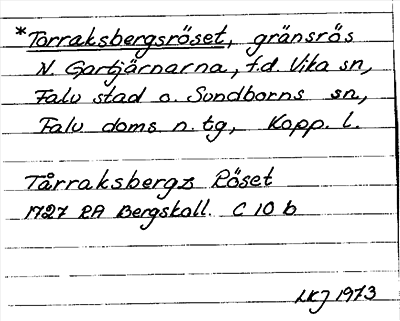 *Torraksbergsröset, gränsrös
N. Gartjärnarna, f.d. Vika sn,
Falu stad o. Sundborns sn,
Falu doms. n. tg, Kopp. l.
Tårraksbergz Röset
1727 RA Bergskoll. C 10 b
LKJ 1973